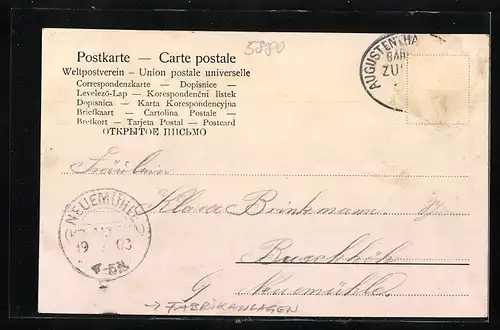 5880
Postkarte — Carte postale
Weltpostverein — Union postale universelle
Correspondenzkarte — Dopisnice —
Levelező-Lap — Korespondenční listek
Dopisnica — Karta Korespondencyjna
Briefkaart — Cartolina Postale —
Brefkort — Tarjeta Postal — Postcard
ОТКРЫТОЕ ПИСЬМО
AUGUSTENTHA
BAH
ZU
Fräulein
Klara Brinkmann
NEUEMÜHLE
19 03
N
Neuemühle.
→ FABRIKANLAGEN